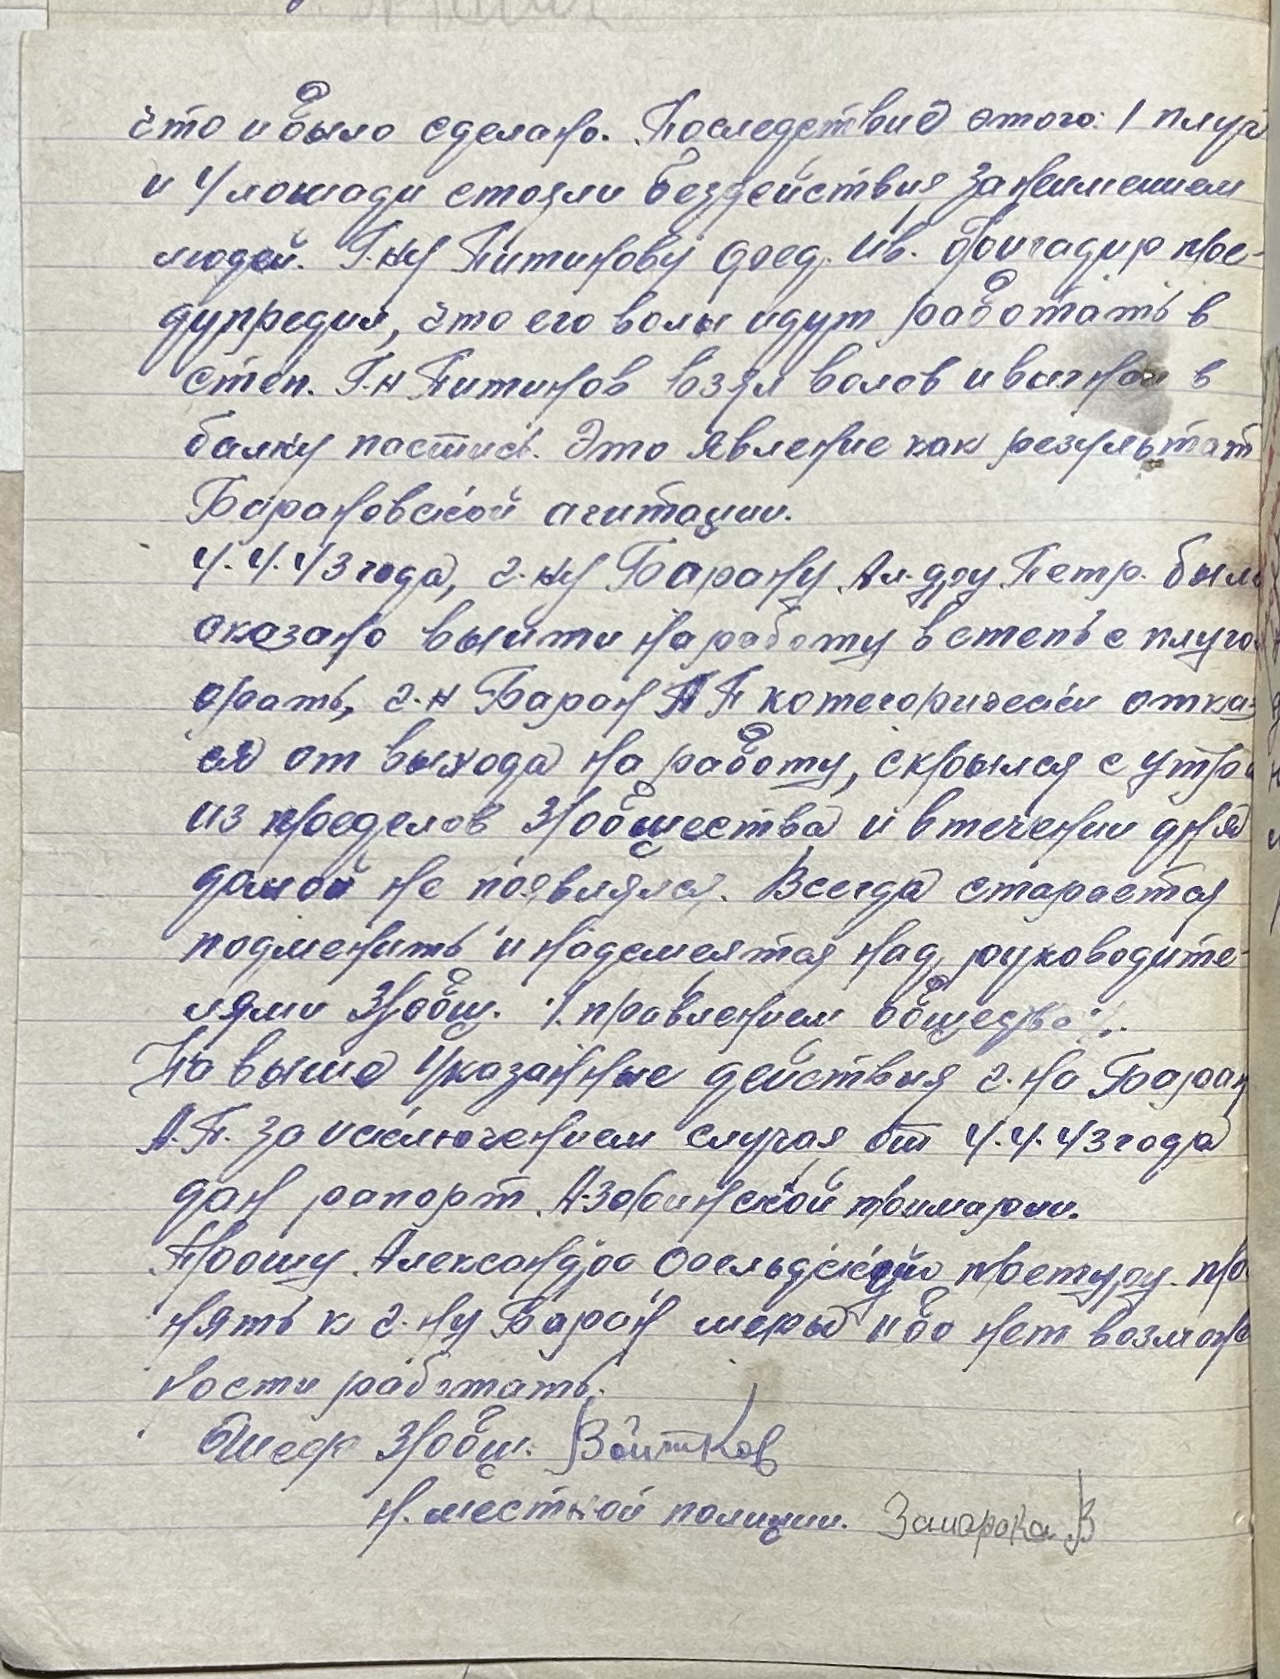 что и было сделано. Последствие этого: 1 плуг
и 4 лошади стояли бездействия за неимением
людей. Г-ну Питинову Фред. Ив. бригадир пре-
дупредил, что его волы идут работать в
степ. Г-н Питинов взял волов и выгнал в
балку пастись. Это явление как результат
Барановской агитации.
4.4.43 года, г-ну Барану Ал-дру Петр. было
сказано выйти на работу в степь с плугом
орать, г-н Баран А П категорически отказ
ся от выхода на работу, скрылся с утра
из пределов З/общества и в течении дня
домой не появлялся. Всегда старается
подменить и надсмеятся над руководите-
лями З/общ. /. правлением общества /.
На выше указанные действия г-на Баран
А.П. за исключением случая от 4.4.43 года
дан рапорт примарии.
Прошу Александро претуру при
нять к г-ну Баран меры ибо нет возмож
ности работать.
Шеф З/общ. Войтков
Н. местной полиции.